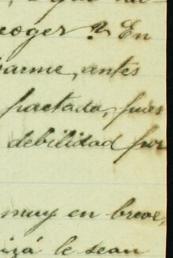 coger? En
arme, antes
pactada, pues
debilidad por
muy en breve,
izá le sean